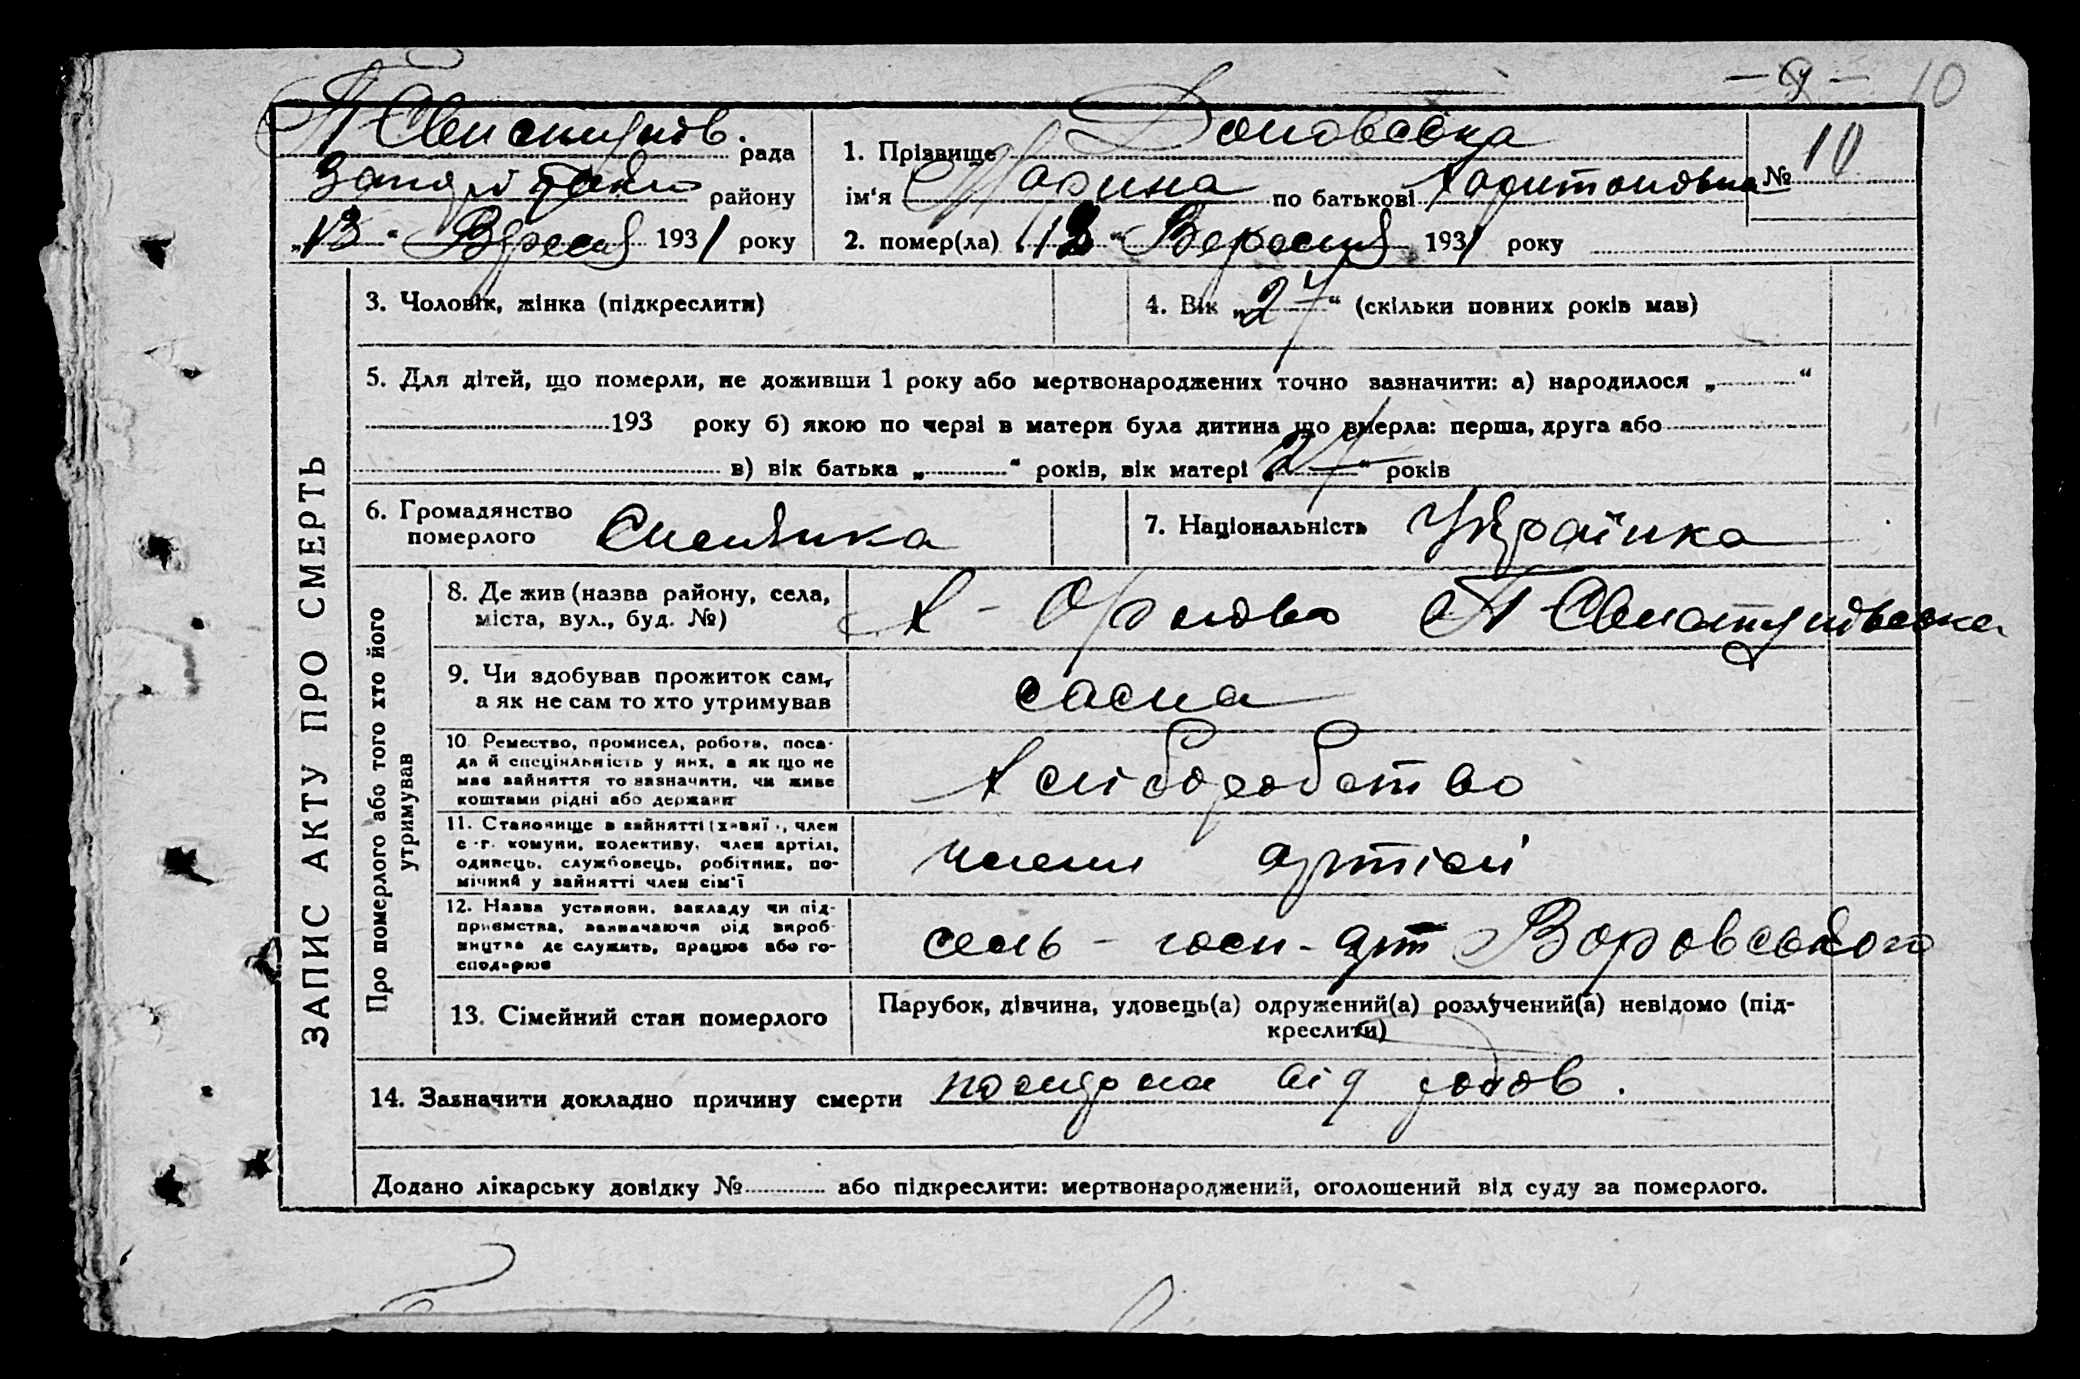 — 9 — 10
П Свистунів. рада
району
„13“ Вересня 1931 року
1. Прізвище
ім'я Марина по батькові Харитоновна № 10
2. помер(ла) „12“ Вересня 1931 року
ЗАПИС АКТУ ПРО СМЕРТЬ
3. Чоловік, жінка (підкреслити)
4. Вік „27“ (скільки повних років мав)
5. Для дітей, що померли, не доживши 1 року або мертвонароджених точно зазначити: а) народилося „ “
193 року б) якою по черзі в матери була дитина що вмерла: перша, друга або
в) вік батька „ “ років, вік матері „27“ років
6. Громадянство
померлого Силянка
7. Національність Українка
Про померлого або того хто його
утримував
8. Де жив (назва району, села,
міста, вул., буд. №)
Х - Орлово П Свистунівська
9. Чи здобував прожиток сам,
а як не сам то хто утримував
сама
10. Ремество, промисел, робота, поса-
да й спеціяльність у них, а як що не
мав зайняття то зазначити, чи живе
коштами рідні або держави
Хліборобство
11. Становище в зайнятті (хазяї, член
с.-г. комуни, колективу, член артілі,
одинець, службовець, робітник, по-
мічний у зайнятті член сім'ї
член артілі
12. Назва установи, закладу чи під-
приємства, зазначаючи рід вироб-
ництва де служить, працює або го-
сподарює
сель - госп - арт Воровського
13. Сімейний стан померлого
Парубок, дівчина, удовець(а) одружений(а) розлучений(а) невідомо (під-
креслити)
14. Зазначити докладно причину смерти померла від родов.
Додано лікарську довідку № або підкреслити: мертвонароджений, оголошений від суду за померлого.